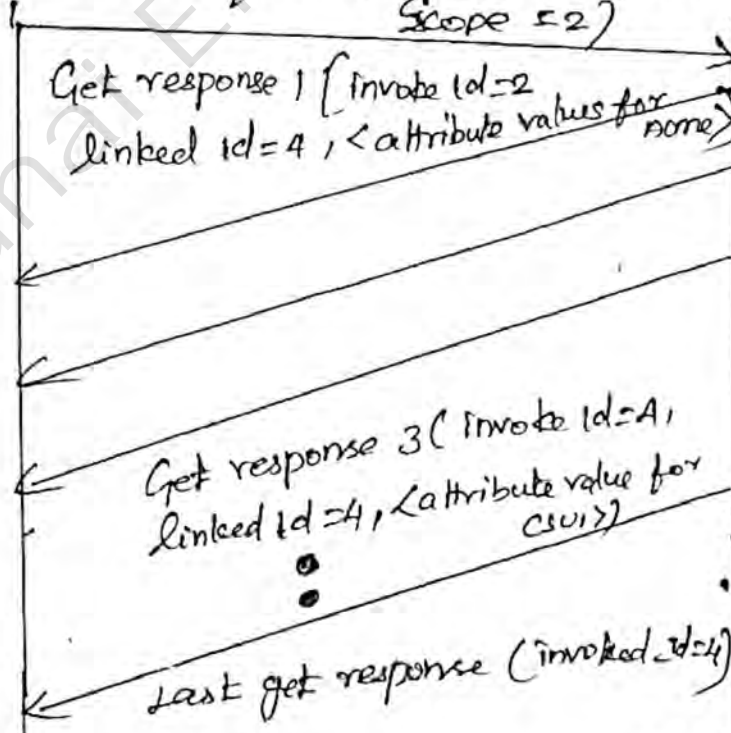 Scope = 2)
Get response 1 [invoke id=2
linked id = 4, <attribute values for
Acme>
Get response 3 ( invoke id=4,
linked id = 4, <attribute value for
CSUI>)
Last get response (invoked_id=4)